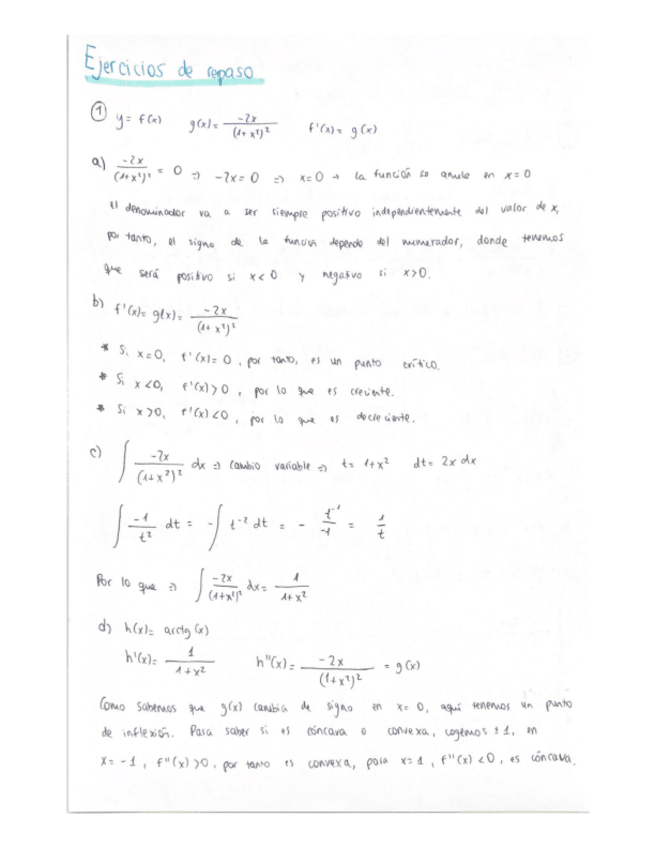 Ejercicios de repaso
① y = f(x) g(x) = -2x/(1+x²)² f'(x) = g(x)
a) -2x/(1+x²)² = 0 => -2x = 0 => x = 0 → la función se anula en x = 0
El denominador va a ser siempre positivo independientemente del valor de x,
por tanto, el signo de la función depende del numerador, donde tenemos
que será positivo si x < 0 y negativo si x > 0.
b) f'(x) = g(x) = -2x/(1+x²)²
* Si x = 0, f'(x) = 0, por tanto, es un punto crítico.
* Si x < 0, f'(x) > 0, por lo que es creciente.
* Si x > 0, f'(x) < 0, por lo que es decreciente.
c) ∫ -2x/(1+x²)² dx => cambio variable => t = 1+x² dt = 2x dx
∫ -1/t² dt = -∫ t⁻² dt = - t⁻¹/-1 = 1/t
Por lo que => ∫ -2x/(1+x²)² dx = 1/1+x²
d) h(x) = arctg(x)
h'(x) = 1/1+x² h''(x) = -2x/(1+x²)² = g(x)
Como sabemos que g(x) cambia de signo en x = 0, aquí tenemos un punto
de inflexión. Para saber si es cóncava o convexa, cogemos ±1, en
x = -1, f''(x) > 0, por tanto es convexa, para x = 1, f''(x) < 0, es cóncava.